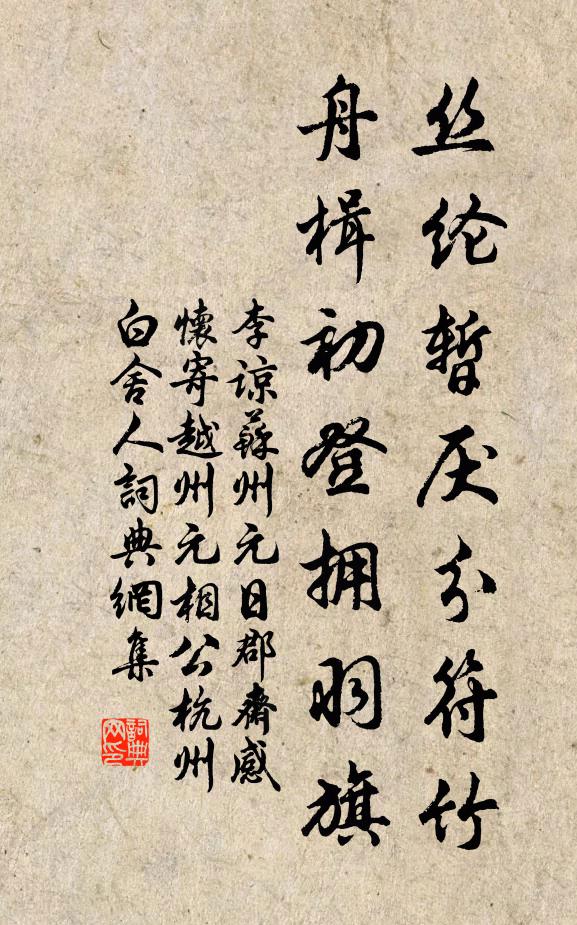 丝纶暂厌分符竹
舟楫初登拥羽旗
李谅蘇州元日郡齋感
懷寄越州元相公杭州
白舍人詞典網集
詞典
网印